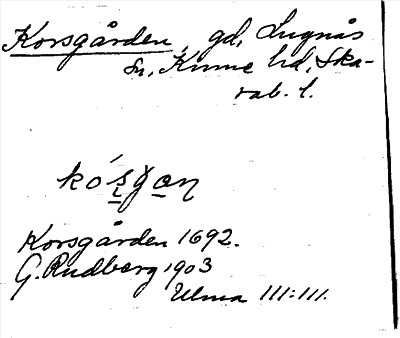 Korsgården, gd, Lugnås
sn, Kinne hd, Ska-
rab. l.
kósgan
Korsgården 1692.
G. Rudberg 1903
Ulma 111:111.